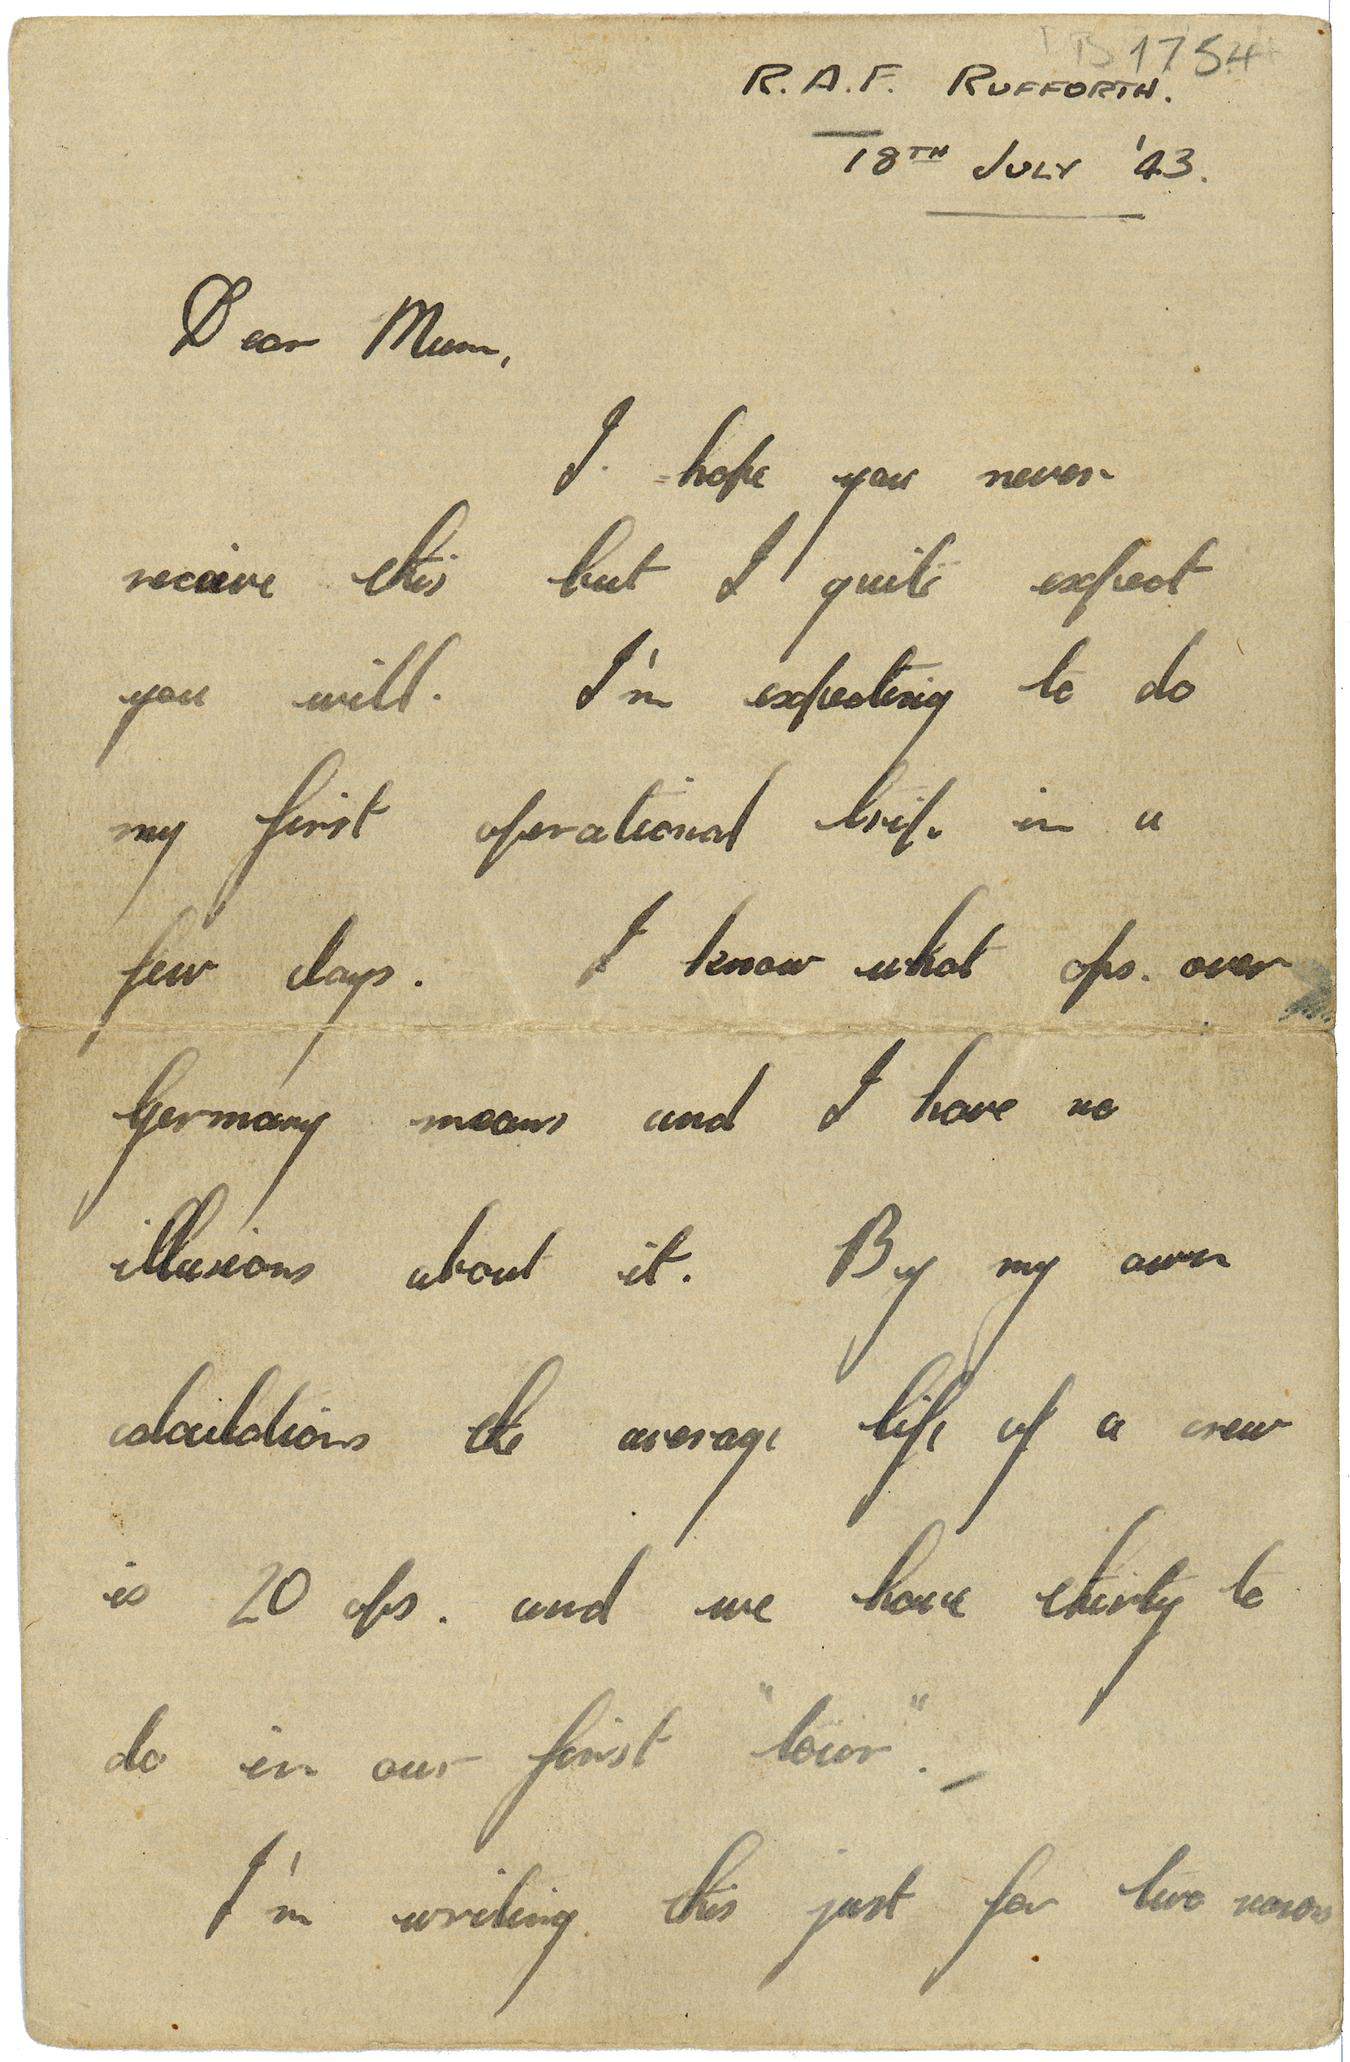 B 1754
R.A.F. RUFFORTH.
18TH JULY '43.
Dear Mum,
I hope you never
receive this but I quite expect
you will. I'm expecting to do
my first operational trip in a
few days. I know what ops. over
Germany means and I have no
illusions about it. By my own
calculations the average life of a crew
is 20 ops. and we have thirty to
do in our first "tour".
I'm writing this just for two